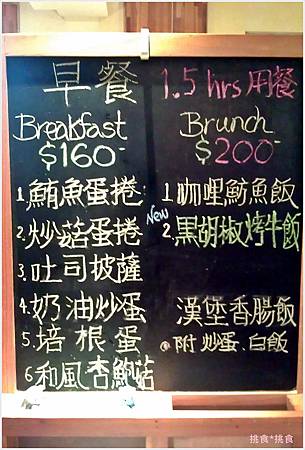 早餐
Breakfast
$160-
1. 鮪魚蛋捲
2. 炒菇蛋捲
3. 吐司披薩
4. 奶油炒蛋
5. 培根蛋
6 和風杏鮑菇
1.5 hrs 用餐
Brunch
$200-
1. 咖哩魴魚飯
New
2. 黑胡椒烤牛飯
漢堡香腸飯
附炒蛋、白飯
挑食*挑食